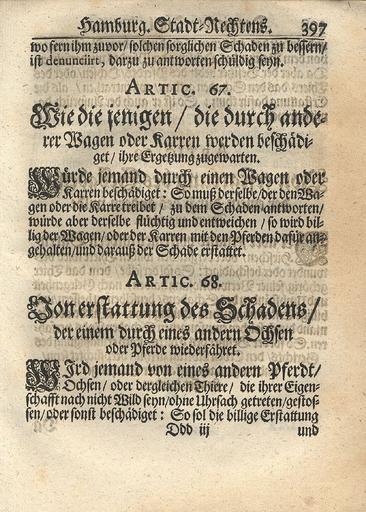 Hamburg. Stadt-Rechtens. 397
wo fern ihm zuvor / solchen sorglichen Schaden zu bessern /
ist denuncürt, darzu zu antworten schüldig seyn.
ARTIC. 67.
Wie die jenigen / die durch ande-
rer Wagen oder Karren werden beschädi-
get / ihre Ergetzung zugewarten.
Würde jemand durch einen Wagen oder
Karren beschädiget : So muß derselbe / der den Wa-
gen oder die Karre treibet / zu dem Schaden antworten /
würde aber derselbe flüchtig und entweichen / so wird bil-
lig der Wagen / oder der Karren mit den Pferden dafür an-
gehalten / und darauß der Schade erstattet.
ARTIC. 68.
Von erstattung des Schadens /
der einem durch eines andern Ochsen
oder Pferde wiederfähret.
Wird jemand von eines andern Pferdt /
Ochsen / oder dergleichen Thiere / die ihrer Eigen-
schafft nach nicht Wild seyn / ohne Uhrsach getreten / gestos-
sen / oder sonst beschädiget : So sol die billige Erstattung
Ddd iij und